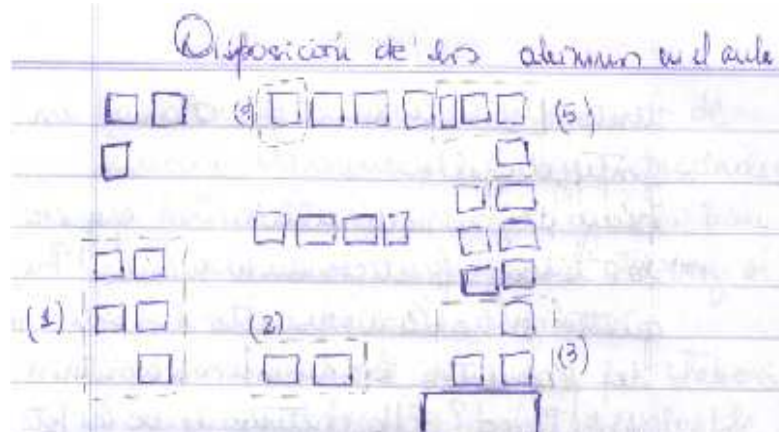 Disposición de los alumnos en el aula
(4) (5)
(1) (2)
(3)